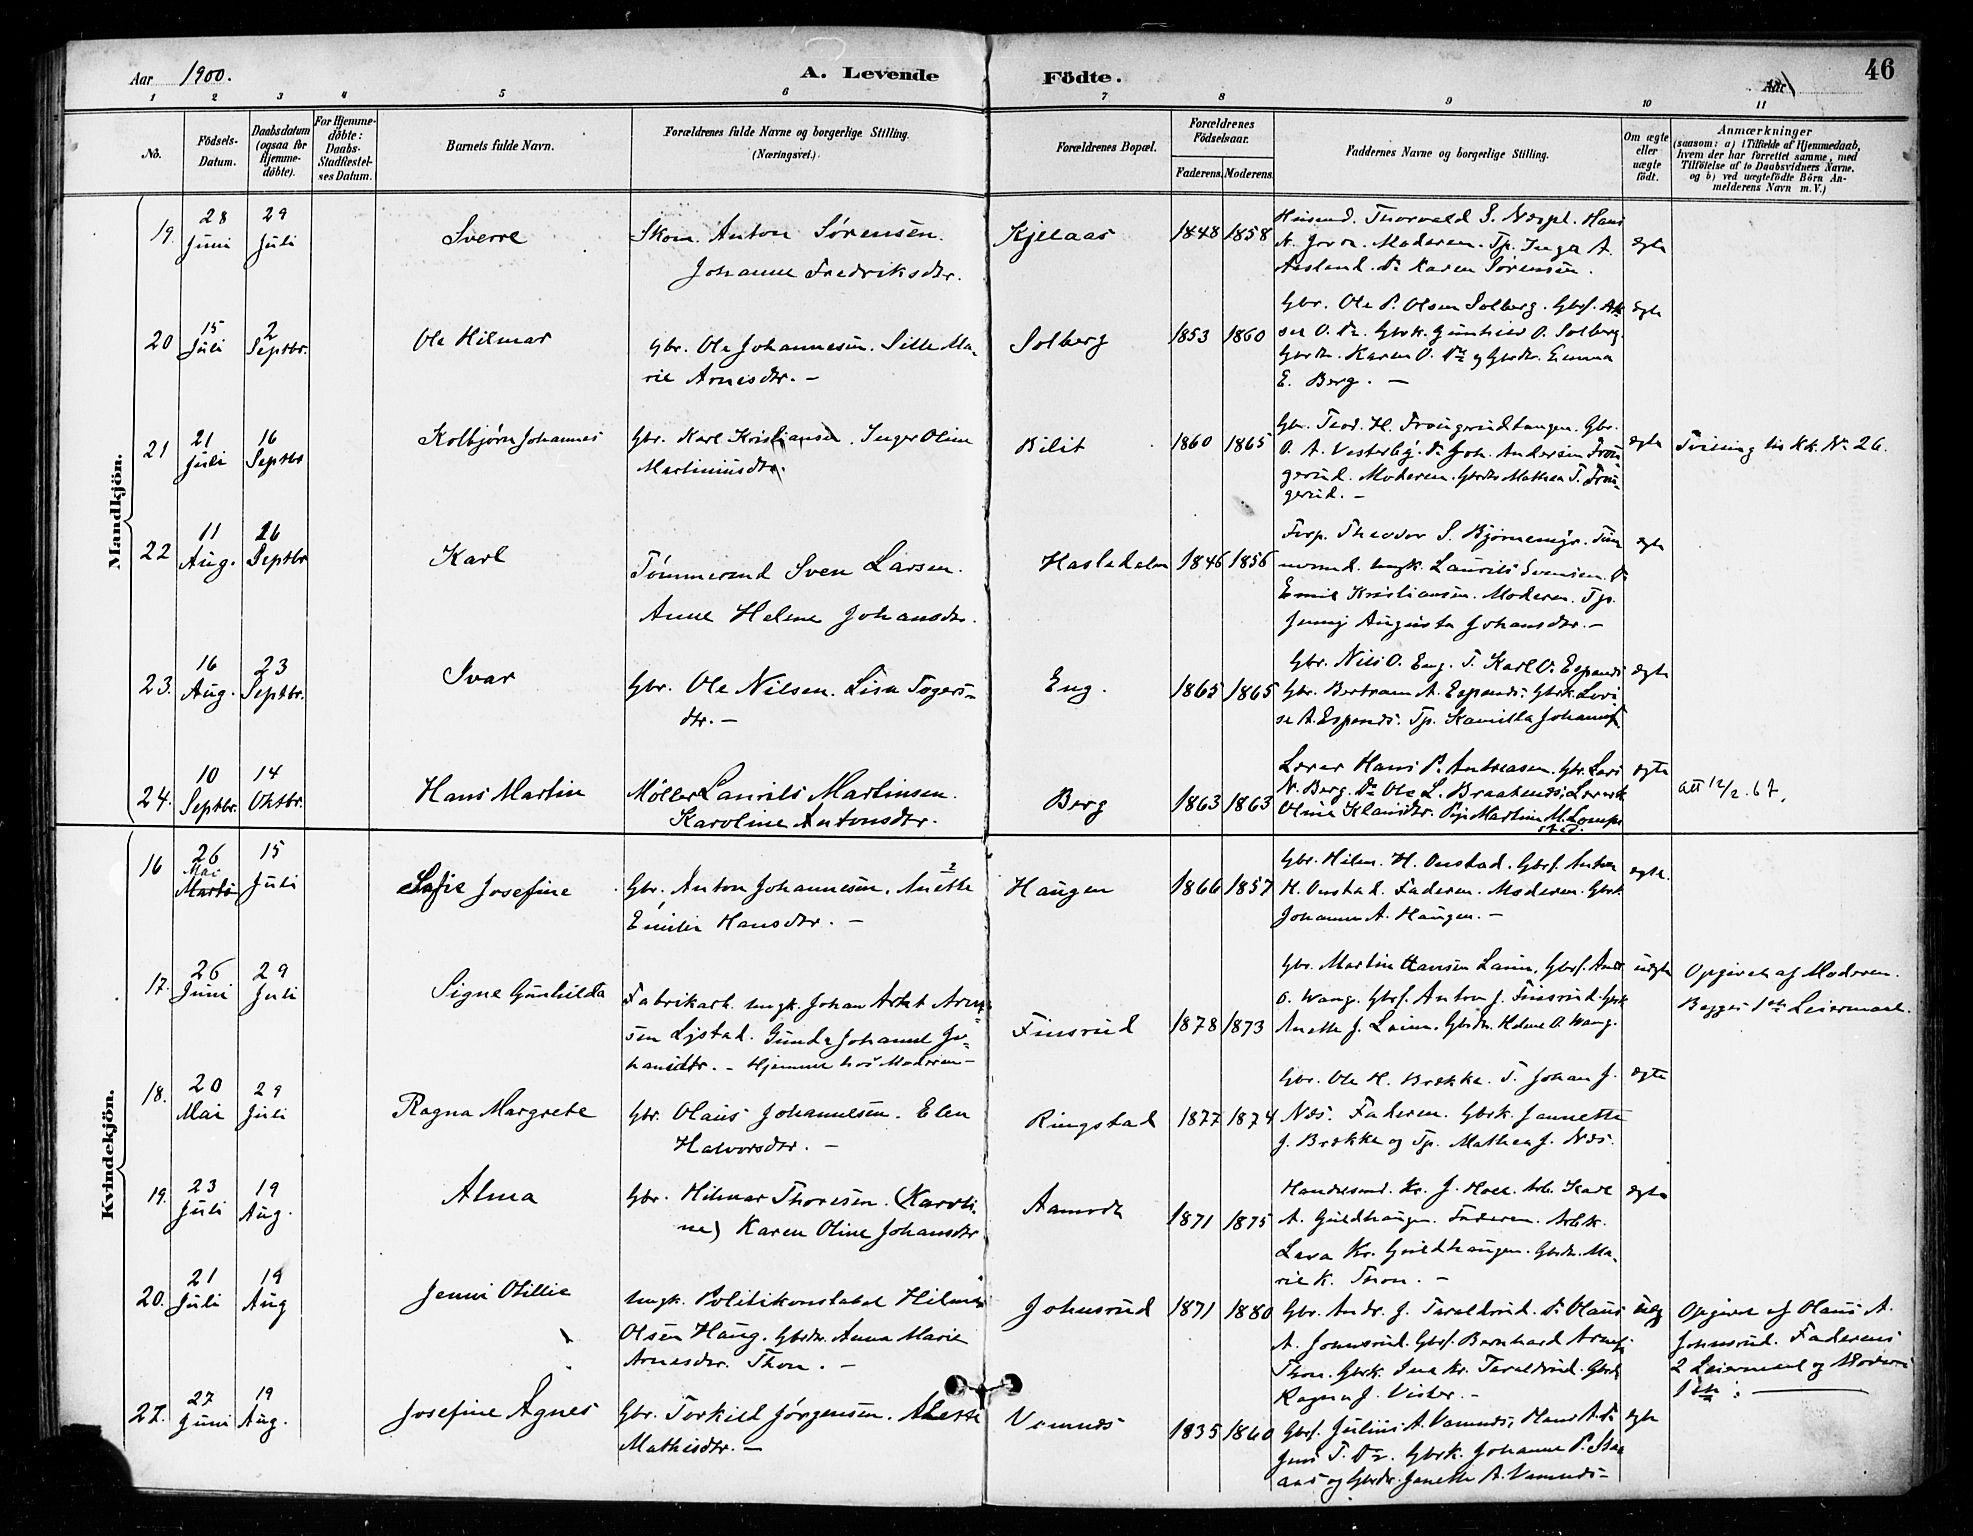 Aar 1900. A. Levende Födte. Aar 46
1 2 3 4 5 6 7 8 9 10 11
No.
Födsels-Datum.
Daabsdatum (ogsaa for Hjemme-døbte).
For Hjemme-døbte: Daabs-Stadfæstel-ses Datum.
Barnets fulde Navn.
Forældrenes fulde Navne og borgerlige Stilling. (Næringsvei.)
Forældrenes Bopæl.
Forældrenes Födselsaar.
Faderens. Moderens.
Faddernes Navne og borgerlige Stilling.
Om ægte eller uægte født.
Anmærkninger
(saasom: a) i Tilfælde af Hjemmedaab,
hvem der har forrettet samme, med
Tilföielse af to Daabsvidners Navne.
og b) ved uægtefödte Börn An-
melderens Navn m. V.)
Mandkjön.
19. 28 Juni 29 Juli Sverre
Skom. Anton Sørensen.
Johanne Fredriksdtr.
Kjelaas 1848 1858
Husmd. Thorvald S. Næspl. Hans
Moderen. Tp. Inga A.
Aasland. Do Karen Sørensen.
ægte
20 15 Juli 2 Septbr. Ole Hilmar
Gbr. Ole Johannesen. Sille Ma-
rie Arnesdtr. –
Solberg 1853 1860
Gbr. Ole P. Olsen Solberg. Gbrs.
O. Do. Gbrk. Gunhild O. Solberg
Gbrdtr. Karen O. Do og Gbrdtr. Emma
E. Berg. –
ægte
21 21 Juli 16 Septbr Kolbjørn Johannes
Gbr. Karl Kristiansen. Inger Oline
Martiniusdtr.
Bilit 1860 1865
Gbr. Teod. H. Frougerudtangen. Gbr.
O. A. Vesterby. Do Joh. Andersen Frou-
gerud. Moderen. Gbrdtr Mathea T. Frou-
gerud. –
ægte Tvilling til Kk. No 26.
22 11 Aug. 16 Septbr Karl
Tømmermd Sven Larsen.
Anne Helene Johansdtr.
Hasledalen 1846 1856
Forp. Theodor S.
Ungk. Laurits Svensen. Do
Emil Kristiansen. Moderen. Tp.
Jenny Augusta Johansdtr. –
ægte
23. 16 Aug. 23 Septbr. Ivar
Gbr. Ole Nilsen. Lisa Togers-
dtr. –
Eng. 1865 1865
Gbr. Nils O. Eng. T. Karl O. Espands
Gbr. Bertram A. Espands. Gbrk. Lovi-
se A. Espands. Tp. Kamilla
ægte
24. 10 Septbr. 14 Oktbr. Hans Martin
Møller Laurits Martinsen.
Karoline Antonsdtr.
Berg 1863 1863
Lærer Hans P. Andreasen. Gbr. Lars
N. Berg. Do Ole L. Braatends. Lærerk
Oline Klausdtr. Pige Martine M.
ægte att 12/2. 67.
Kvindekjön.
16 26 Mai Marts 15 Juli Sofie Josefine
Gbr. Anton Johannesen. Anette
Emilie Hansdtr. –
Haugen 1866 1857
Gbr. Hilm. H. Onstad. Gbrs. Anton
H. Onstad. Faderen. Moderen. Gbrk.
Johanne A. Haugen. –
ægte.
17. 26 Juni 29 Juli Signe Gunhilda
Fabrikarb. ungk. Johan Artet Arne-
sen Ljstad. Gunda Johanne Jo-
hansdtr. – Hjemme hos Moderen –
Finsrud 1878 1873
Gbr. Martin Hansen Laim. Gbrs. Andr.
O. Wang. Gbrs. Anton J. Finsrud. Gbrk
Anette J. Laim. Gbrdtr. Helene O. Wang.
uægte
Opgivet af Moderen.
Begges 1ste Leiermaal.
18. 20 Mai 29 Juli Ragna Margrete
Gbr. Olaus Johannesen. Elen
Halvorsdtr. –
Ringstad 1877 1874
Gbr. Ole H. Brække. T. Johan J.
Næs. Faderen. Gbrk. Jannette
J. Brække og Tp. Mathea J. Næs.
ægte
19. 23 Juli 19 Aug. Alma
Gbr. Hilmar Thoresen. (Karoli-
ne) Karen Oline Johansdtr
Aamodt 1871 1875
Handelsmd. Kr. J. Moen. Arb. Karl
A. Guldhaugen. Faderen. Arbk.
Lava Kr. Guldhaugen. Gbrdtr. Ma-
rie K. Thon. –
ægte
20. 21 Juli 19 Aug Jenni Otillie
Ungk. Politikonstabel Hilmar
Olsen Haug. Gbrdtr. Anna Marie
Arnesdtr. Thon. –
Johnsrud 1871 1880
Gbr. Andr. J. Taraldsrud. Do Olaus
A. Johnsrud. Gbrs. Bernhard Arnes.
Thon. Gbrk. Ina Kr. Taraldrud. Gbrdtr
Ragna J. Vister. –
uæg
Opgivet af Olaus A.
Johnsrud. Faderens
2 Leiermaal og Moderens
1ste.
27. 27 Juni 19 Aug. Josefine Agnes
Gbr. Torkild Jørgensen. Alette
Mathisdtr. –
Vamnes 1835 1860
Gbrs. Julius A. Vamnes. Hans A. Do
Jens T. Do. Gbrk. Johanne P.
og Gbrdtr. Janette A. Vamnes –
ægte